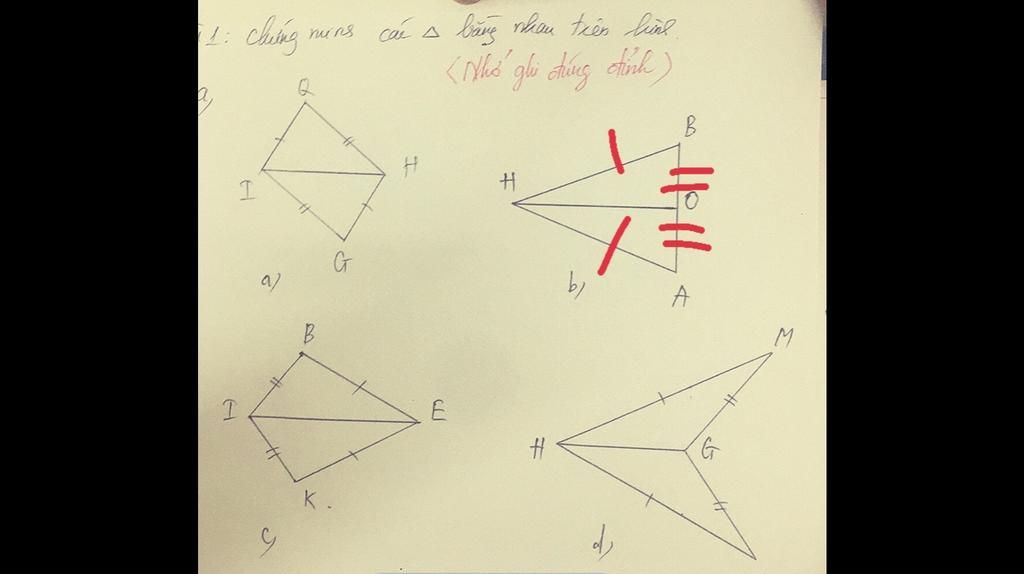 1: Chứng minh các Δ bằng nhau trên hình.
(Nhớ ghi đúng đỉnh)
a,
Q
I
H
G
a)
B
H
O
A
b)
B
I
E
K.
c)
M
H
G
d)